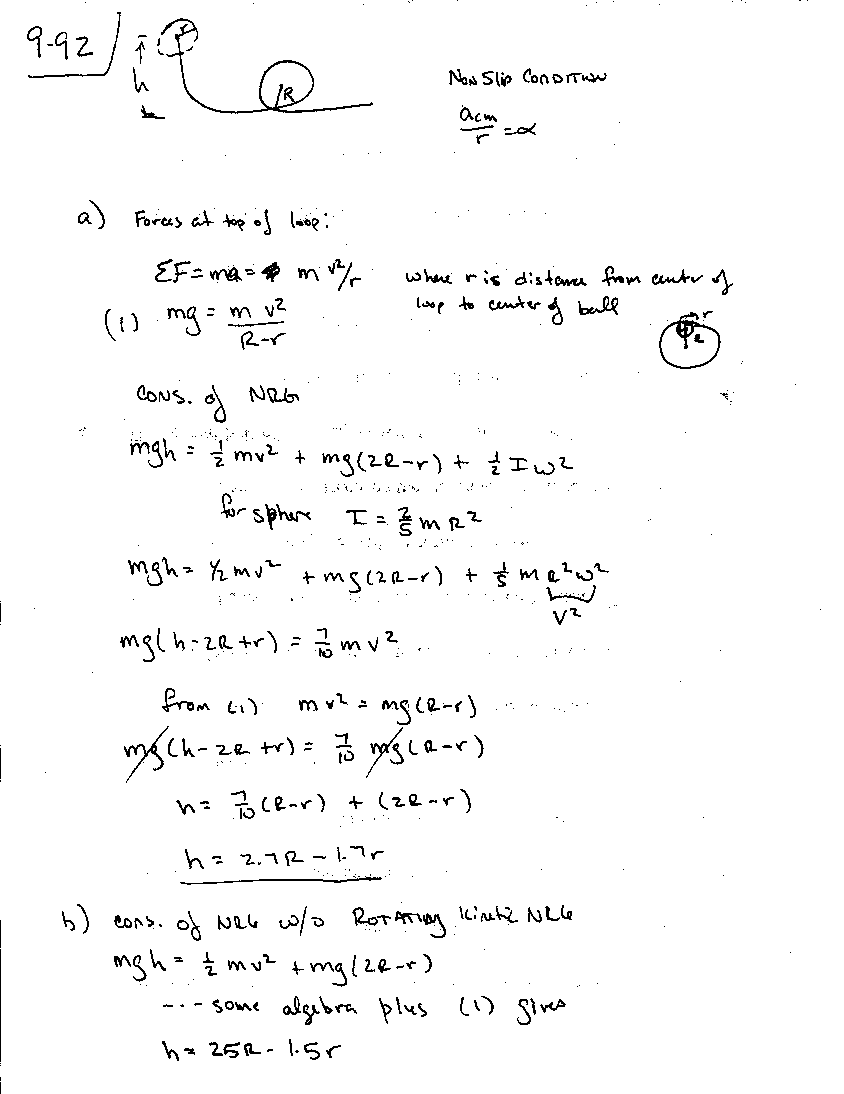 9-92
r
h
R
Non Slip Condition
acm/r = α
a) Forces at top of loop:
ΣF = ma = m v²/r where r is distance from center of
loop to center of ball
(1) mg = m v²/R-r
r
R
cons. of NRG
mgh = ½ mv² + mg(2R-r) + ½ I ω²
for sphere I = 2/5 m R²
mgh = ½ mv² + mg(2R-r) + 1/5 m R² ω²
v²
mg(h-2R+r) = 7/10 m v²
from (1) m v² = mg(R-r)
mg(h-2R+r) = 7/10 mg(R-r)
h = 7/10 (R-r) + (2R-r)
h = 2.7R - 1.7r
b) cons. of NRG w/o Rotating Kinetic NRG
mgh = ½ mv² + mg(2R-r)
... some algebra plus (1) gives
h = 25R - 1.5r